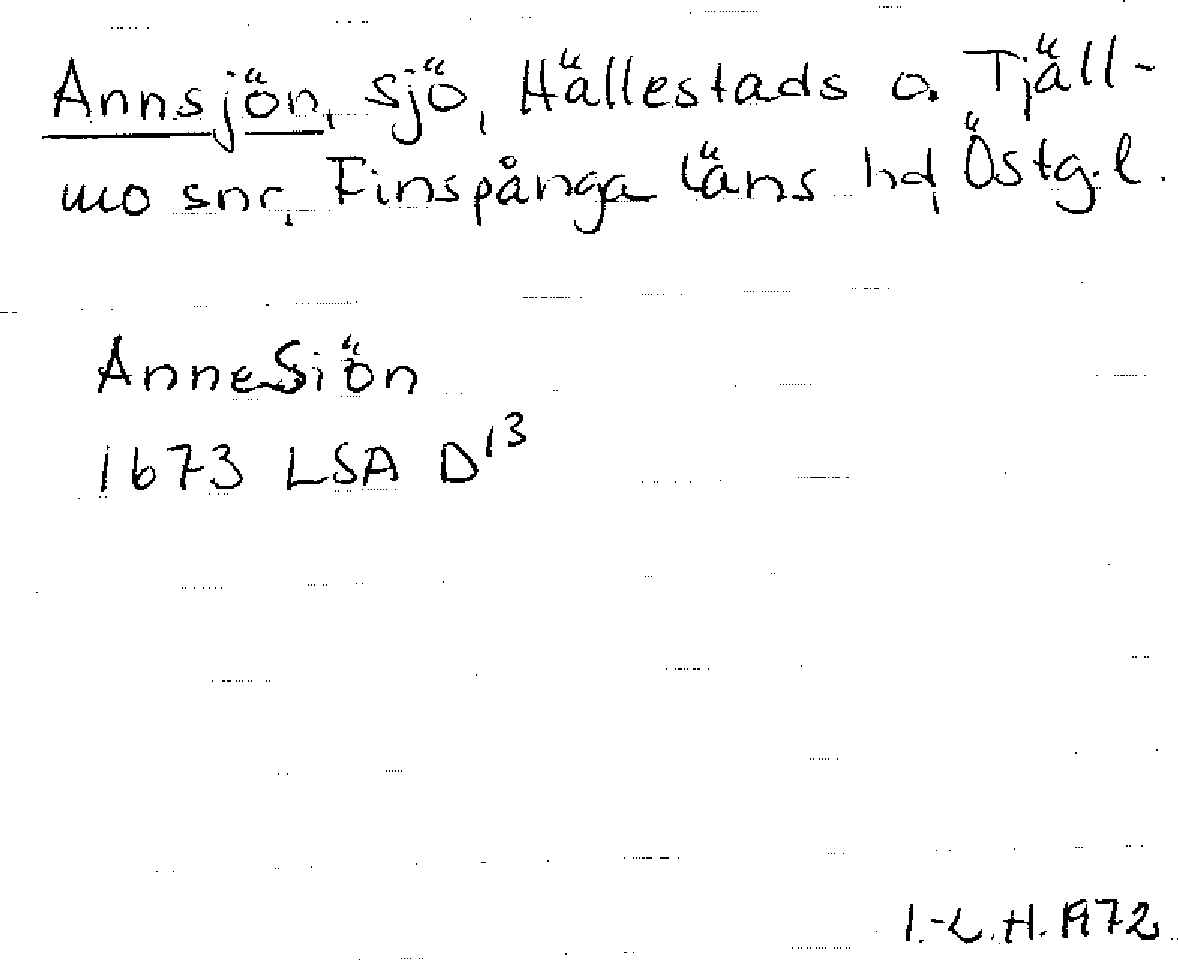 Annsjön, sjö, Hällestads o. Tjäll-
mo snr, Finspånga läns hd, Östg.l.
AnneSiön
1673 LSA D¹³
I.-L.H. 1972